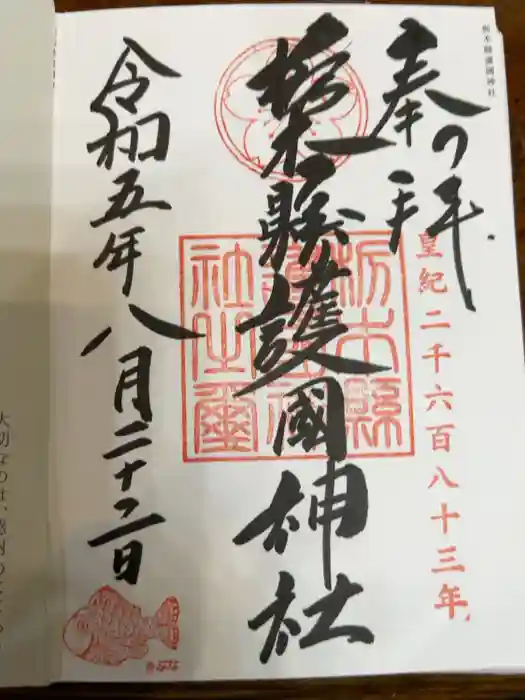 栃木縣護國神社
奉拝
皇紀二千六百八十三年
栃木縣護國神社
栃木縣護國神社之璽
令和五年八月二十二日